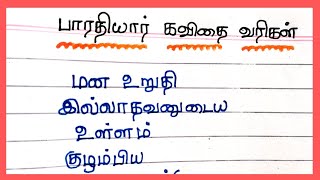 பாரதியார் கவிதை வரிகள்
மன உறுதி
இல்லாதவனுடைய
உள்ளம்
குழம்பிய